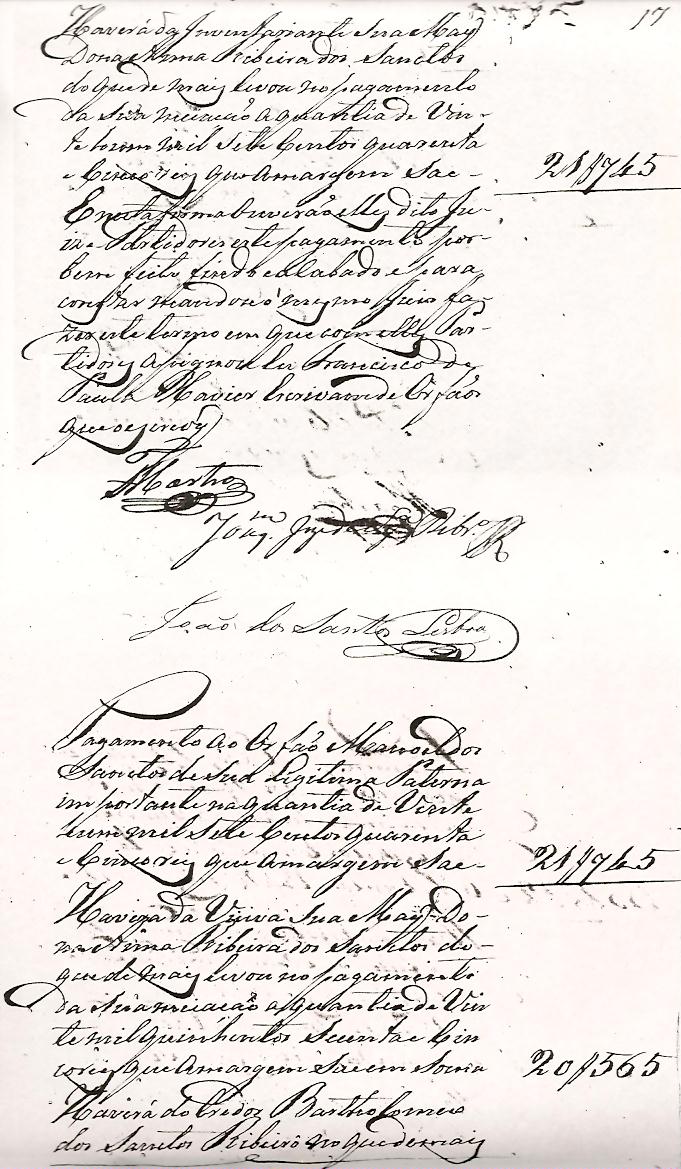 17
Haverá da Inventariante Sua May
Dona Anna Ribeira dos Sanctos
do que de mais levou no pagamento
da Sua meiacaõ a quantia de Vin-
te hum mil Sete Centos quarenta
e Cinco reis que amargem Sae - 21$745
E nesta forma houveraõ elles dito Ju-
iz e Partidores este pagamento por
bem feito, firme e acabado e para
constar mandou o mesmo Juiz fa-
zer este termo em que com elles Par-
tidores assignou Eu Francisco de
Paula Xavier Escrivam de Orfaõs
que o escrevy
Joaq.m Ribr.o
Joaõ dos Santos Lisboa
Pagamento ao Orfaõ Manoel dos
Sanctos de Sua Legitima Paterna
importante na quantia de Vinte
hum mil Sete Centos quarenta
e Cinco reis que amargem Sae - 21$745
Haverá da Viuva Sua May Do-
na Anna Ribeira dos Sanctos do
que de mais levou no pagamento
da Sua meiacaõ a quantia de Vin
te mil quinhentos Secenta e Cin
co reis que amargem Sae em Soma 20$565
Haverá do Credor Bartholomeo
dos Sanctos Ribeiro no que de mais